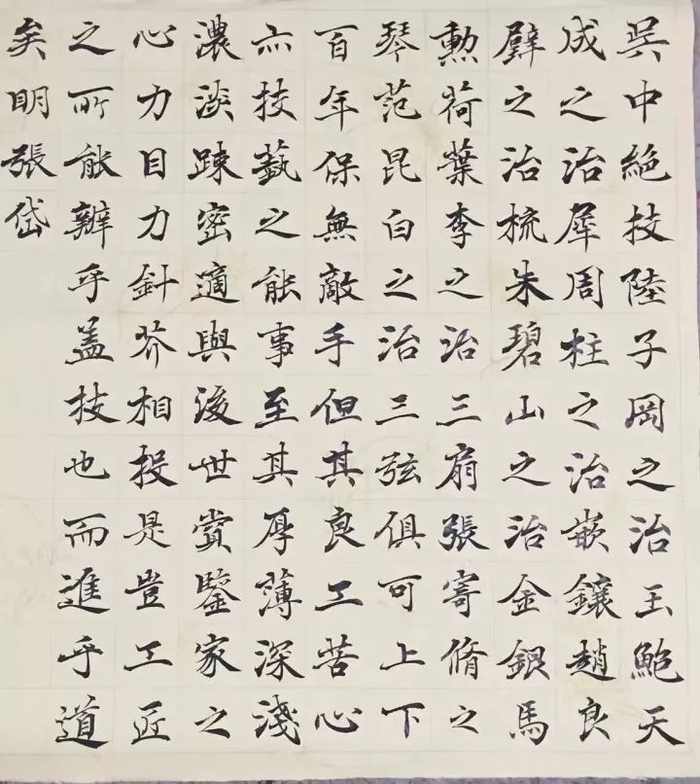 吳中絕技陸子岡之治玉鮑天
成之治犀周柱之治嵌鑲趙良
璧之治梳朱碧山之治金銀馬
勳荷葉李之治三扇張寄脩之
琴范昆白之治三弦俱可上下
百年保無敵手但其良工苦心
亦技藝之能事至其厚薄深淺
濃淡疎密適與後世賞鑒家之
心力目力針芥相投是豈工匠
之所能辦乎蓋技也而進乎道
矣明張岱